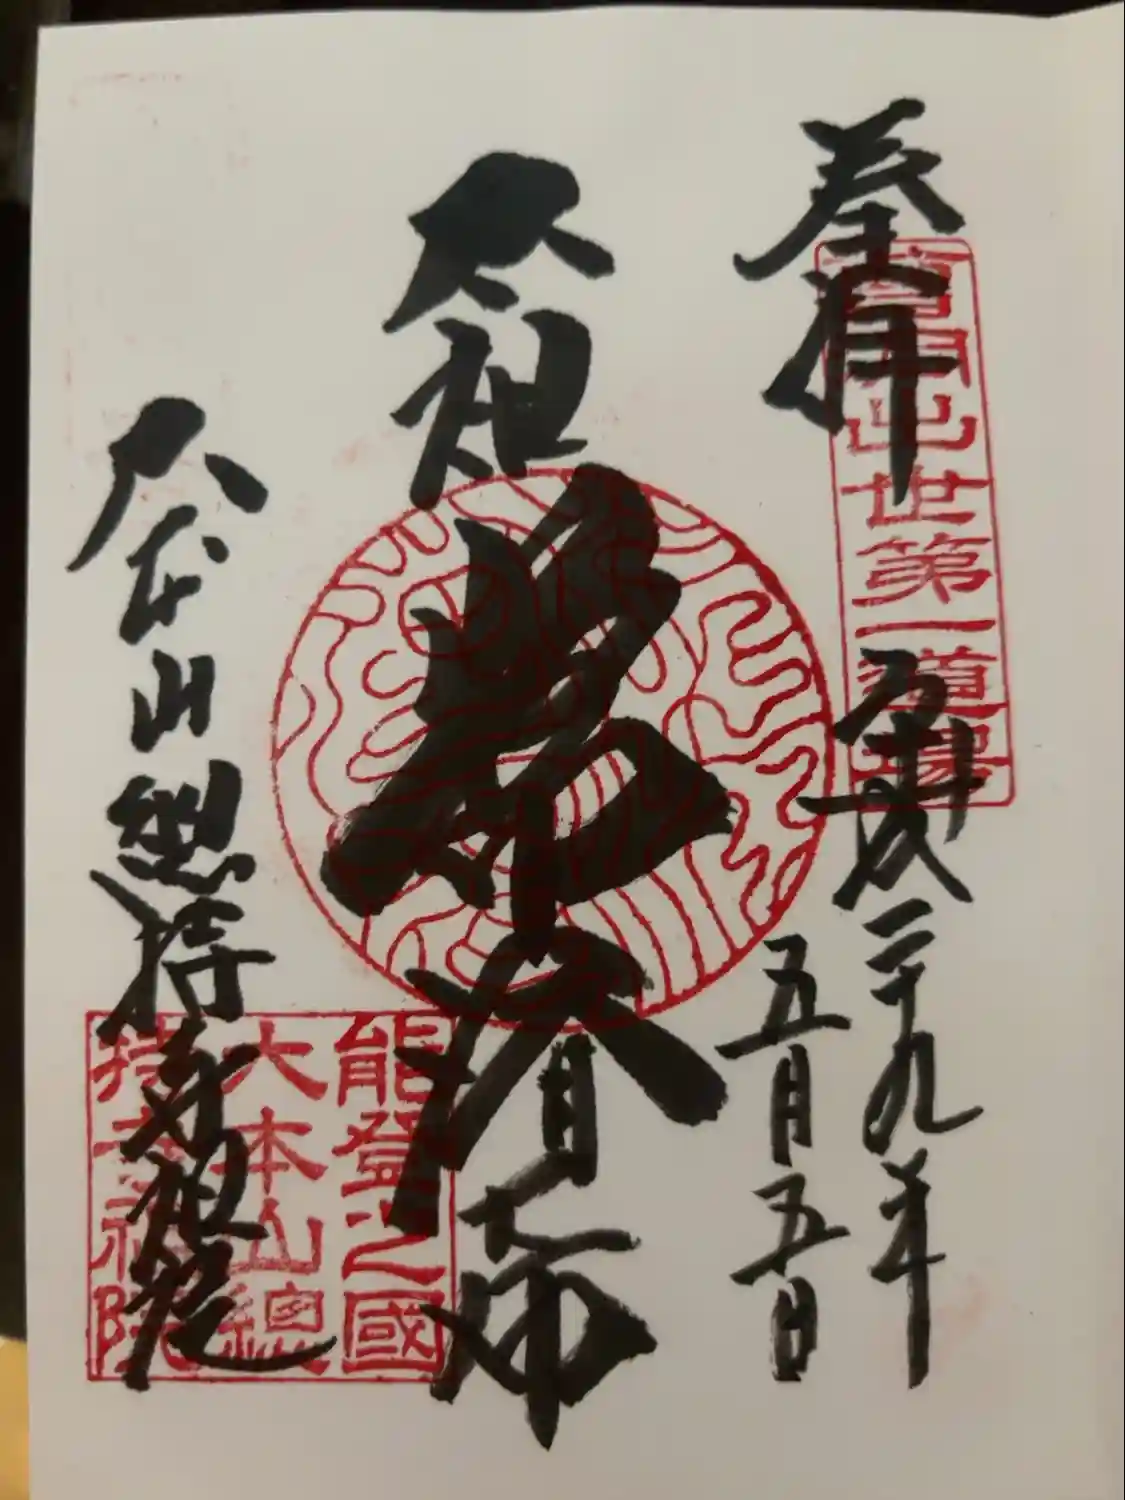 奉拝
曹洞出世第一道場
平成二十九年
五月五日
太祖常済大師
大本山總持寺祖院
能登之國
大本山總
持寺祖院